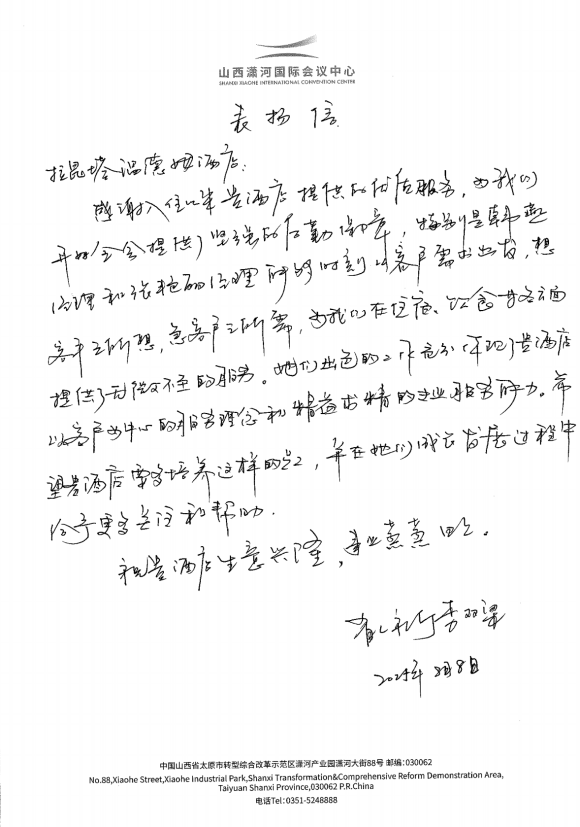 山西潇河国际会议中心
SHANXI XIAOHE INTERNATIONAL CONVENTION CENTER
表扬信
拉昆塔温德姆酒店:
感谢入住以来贵酒店提供的优质服务,为我们
开好全会提供了坚强的后勤保障,特别是韩燕
经理和张艳丽经理能够时刻以客户需求出发,想
客户之所想,急客户之所需,为我们在住宿、饮食等各方面
提供了无微不至的服务。她们出色的工作充分体现了贵酒店
以客户为中心的服务理念和精益求精的专业服务能力。希
望贵酒店要多培养这样的员工,并在她们成长发展过程中
给予更多关注和帮助。
祝贵酒店生意兴隆,事业蒸蒸日上。
李
8日
中国山西省太原市转型综合改革示范区潇河产业园潇河大街88号 邮编:030062
No.88,Xiaohe Street,Xiaohe Industrial Park,Shanxi Transformation&Comprehensive Reform Demonstration Area,
Taiyuan Shanxi Province,030062 P.R.China
电话Tel:0351-5248888